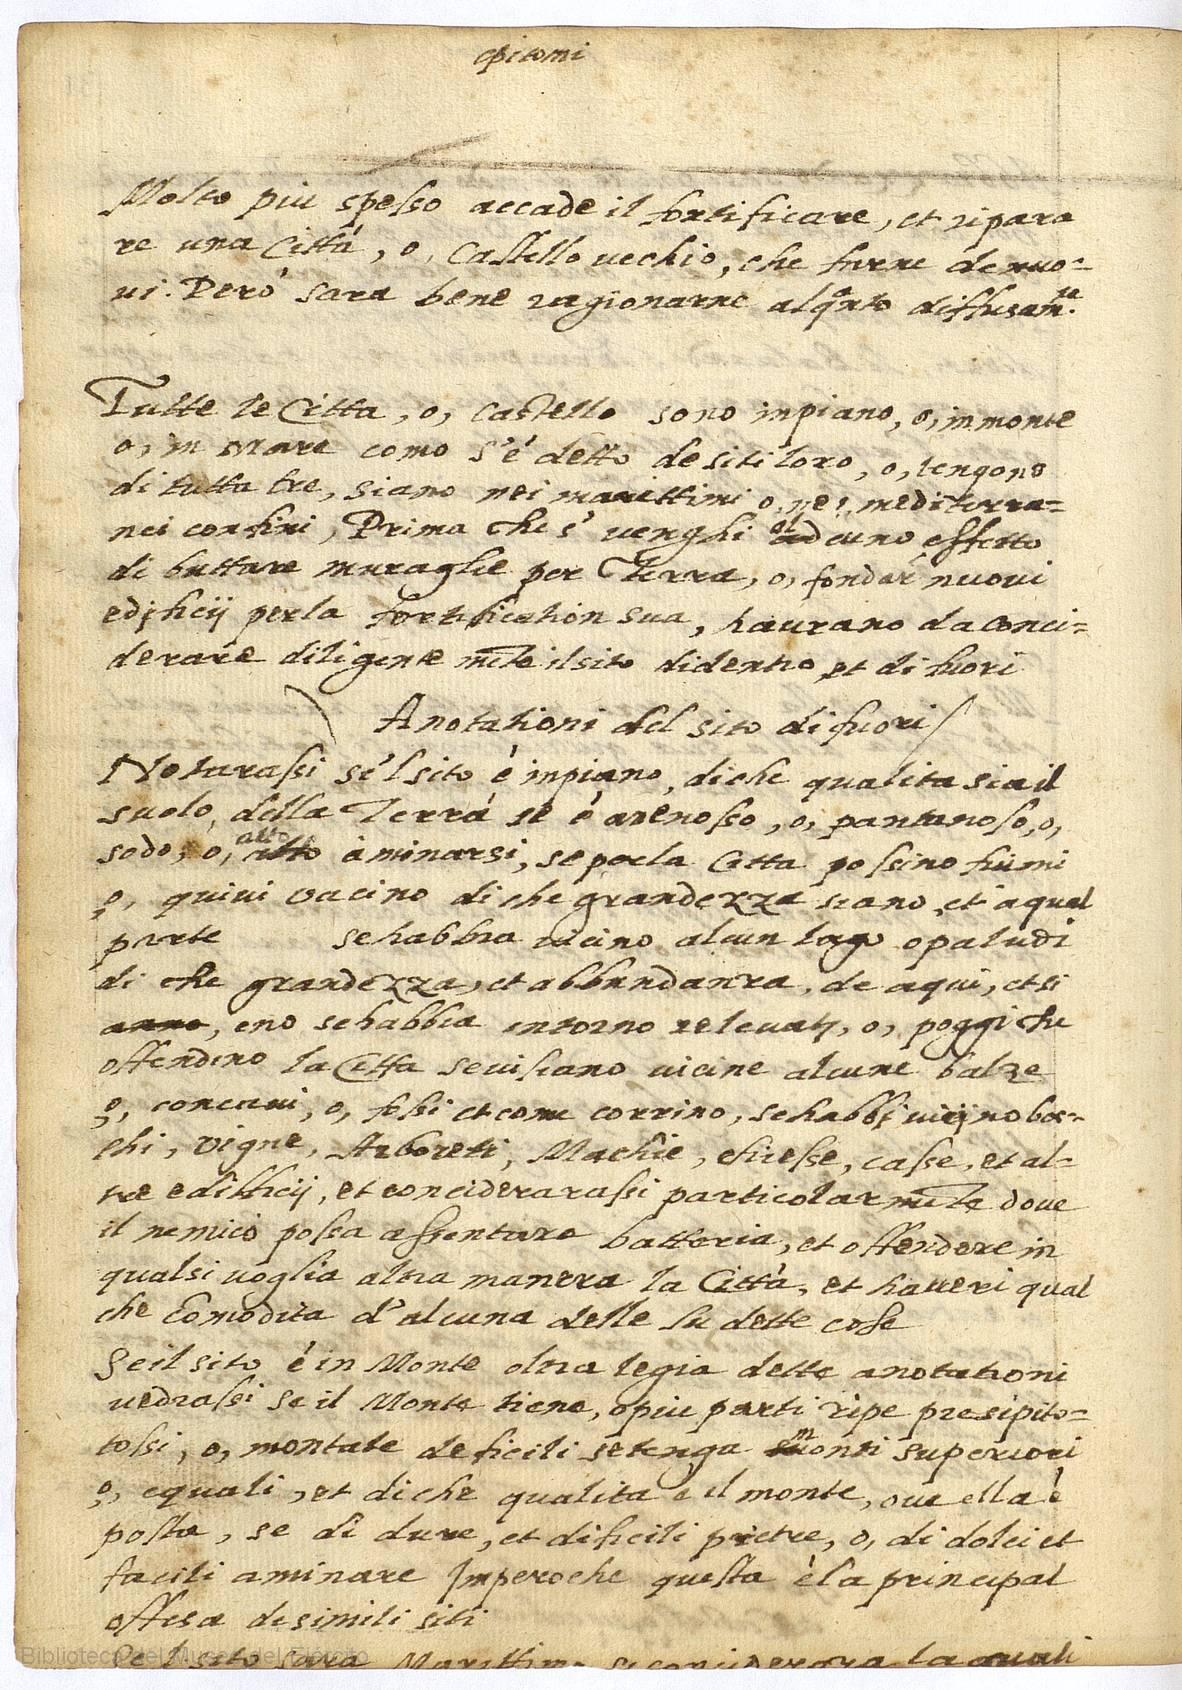 epitomi
Molto piu spesso accade il fortificare, et ripara
re una Città, o, Castello vechio, che farne de nuo=
ui. Però sara bene ragionarne alqnto diffusamte.
Tutte le Citta, o, castello sono in piano, o, in monte
o, in mare como s'é detto de siti loro, o, tengono
di tutta tre, siano nei marittimi o, nei mediterra=
nei confini, Prima che s' venghi ad cuno effetto
di buttare muraglie per Terra, o, fondar nuovi
edificij per la fortification sua, haurano da conci=
derare diligente mte il sito di dentro et di fuori
Anotationi del sito di fuori
Notarassi se'l sito è in piano, di che qualita sia il
suolo, della Terra se é arenosso, o, pantanoso, o,
sodo, o, atto à minarsi, se per la Citta possino fiumi
o, quiui vacino di che grandezza siano, et à qual
parte se habbia vicino alcun lago o paludi
di che grandezza, et abbundanza, de aqui, et si
anno, eno se habbia intorno releuati, o, poggi che
offendino la Citta se vi siano vicine alcune balze
o, concaui, o, fossi et come corrino, se habbi vicino bos=
chi, vigne, Arboreti, Machie, chiesse, casse, et al=
tre edifficij, et conciderarassi particolar mte dove
il nemico possa assentare batteria, et offendere in
qual si voglia altra manera la Città, et haueri qual
che comodita d'alcuna delle su dette cose
Se il sito é in Monte oltra le gia dette anotationi
vedrassi se il Monte tiene, o piu parti ripe presipito=
tossi, o, montate deficili se tenga monti superiori
o, equali, et di che qualita è il monte, oue ella è
posta, se di dure, et dificili pietre, o, di dolci et
facili a minare Imperoche questa è la principal
offesa de simili siti
Se l sito sara Marittimo si conciderara la quali
Biblioteca del Museo del Ejército